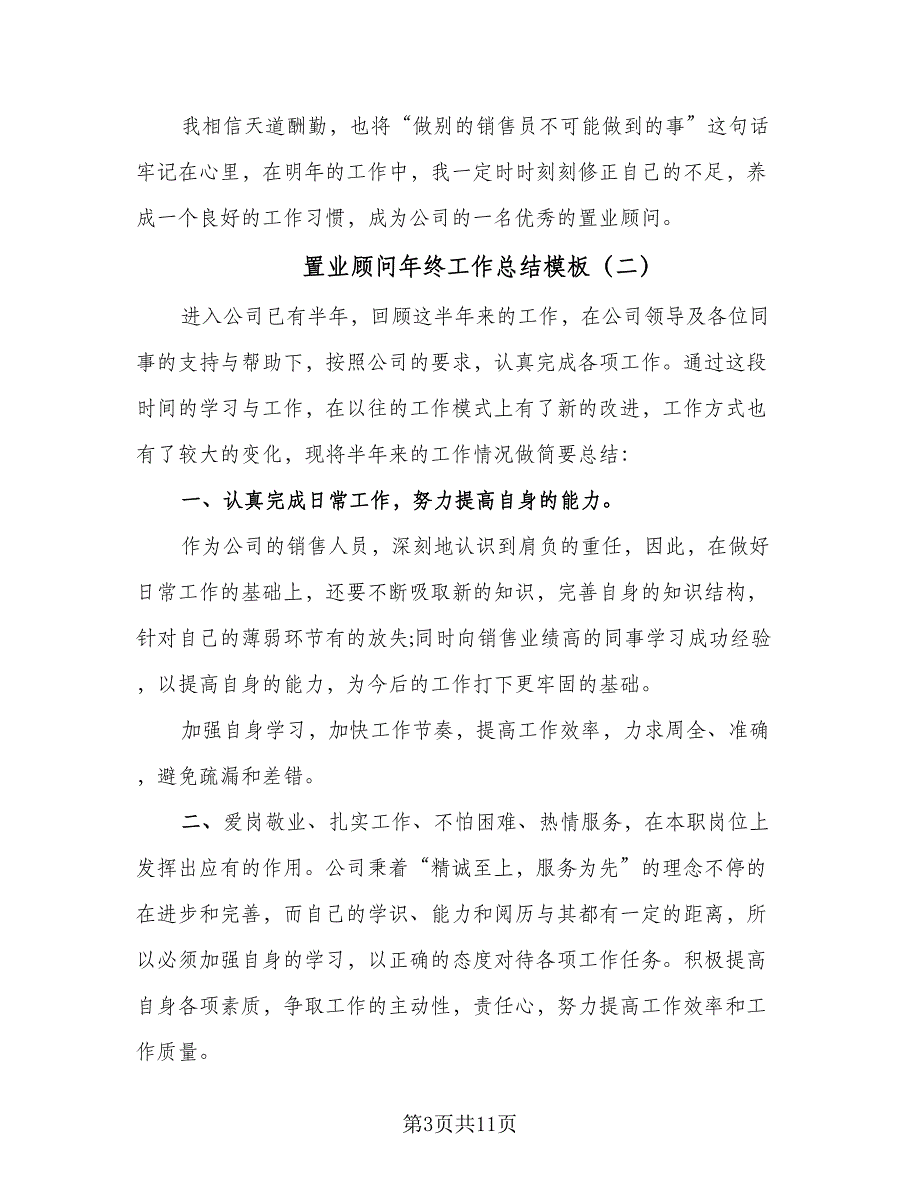 我相信天道酬勤，也将“做别的销售员不可能做到的事”这句话
牢记在心里，在明年的工作中，我一定时时刻刻修正自己的不足，养
成一个良好的工作习惯，成为公司的一名优秀的置业顾问。
置业顾问年终工作总结模板（二）
进入公司已有半年，回顾这半年来的工作，在公司领导及各位同
事的支持与帮助下，按照公司的要求，认真完成各项工作。通过这段
时间的学习与工作，在以往的工作模式上有了新的改进，工作方式也
有了较大的变化，现将半年来的工作情况做简要总结：
一、认真完成日常工作，努力提高自身的能力。
作为公司的销售人员，深刻地认识到肩负的重任，因此，在做好
日常工作的基础上，还要不断吸取新的知识，完善自身的知识结构，
针对自己的薄弱环节有的放失;同时向销售业绩高的同事学习成功经验
，以提高自身的能力，为今后的工作打下更牢固的基础。
加强自身学习，加快工作节奏，提高工作效率，力求周全、准确
，避免疏漏和差错。
二、爱岗敬业、扎实工作、不怕困难、热情服务，在本职岗位上
发挥出应有的作用。公司秉着“精诚至上，服务为先”的理念不停的
在进步和完善，而自己的学识、能力和阅历与其都有一定的距离，所
以必须加强自身的学习，以正确的态度对待各项工作任务。积极提高
自身各项素质，争取工作的主动性，责任心，努力提高工作效率和工
作质量。
第3页共11页